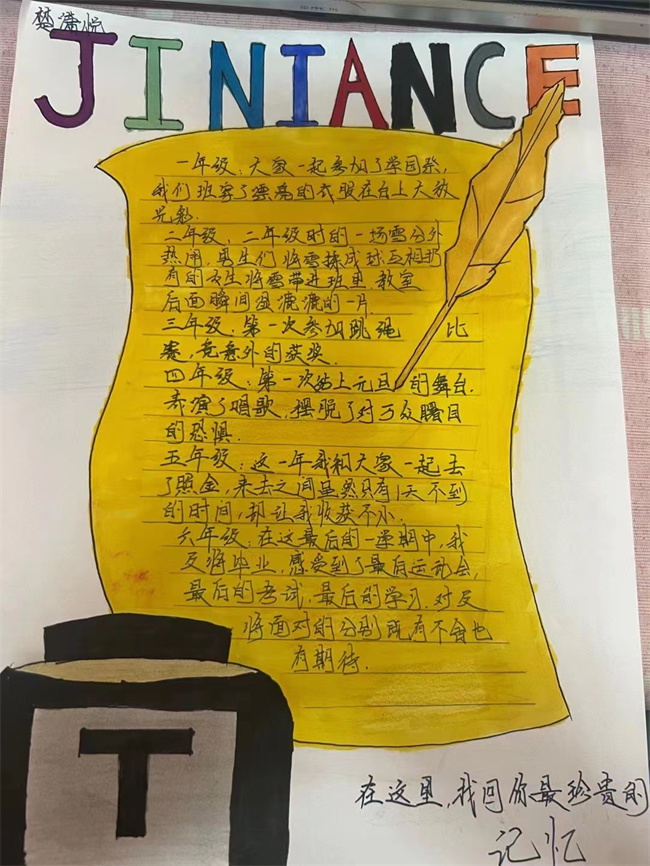 楚潇悦
JINIANCE
一年级：大家一起参加了学园祭，
我们班穿了漂亮的衣服在台上大放
光彩.
二年级，二年级时的一场雪分外
热闹，男生们将雪揉成球互相扔
有的女生将雪带进班里 教室
后面瞬间湿漉漉的一片
三年级：第一次参加跳绳 比
赛，竟意外的获奖.
四年级：第一次站上元旦的舞台.
表演了唱歌，摆脱了对万众瞩目
的恐惧.
五年级：这一年我和大家一起去
了照金，来去之间虽然只有1天不到
的时间，却让我收获不小.
六年级：在这最后的一学期中，我
及将毕业，感受到了最后运动会，
最后的考试，最后的学习.对及
将面对的分别既有不舍也
有期待.
T
在这里，我回你最珍贵的
记忆